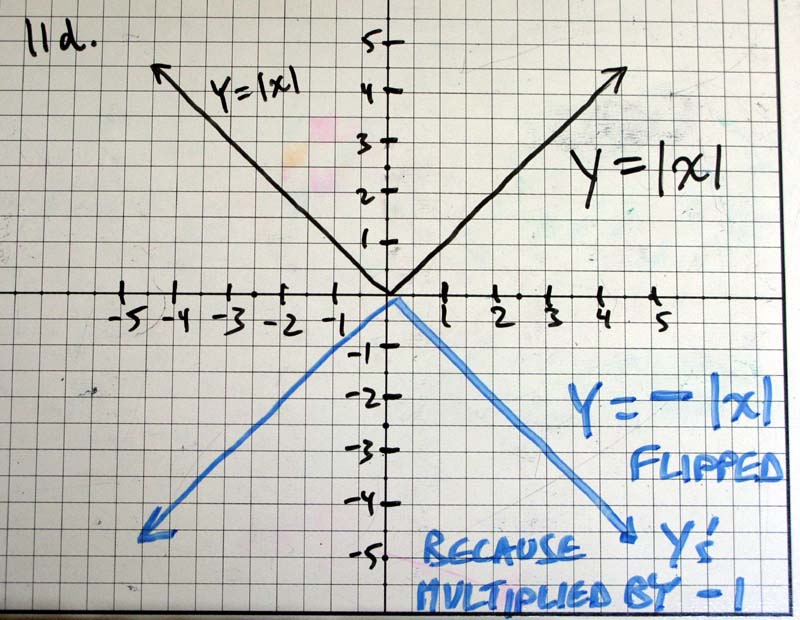 11d.
y=|x|
y=|x|
5
4
3
2
1
-5 -4 -3 -2 -1 1 2 3 4 5
-1
-2
-3
-4
-5
y = - |x|
FLIPPED
Y's
BECAUSE
MULTIPLIED BY -1